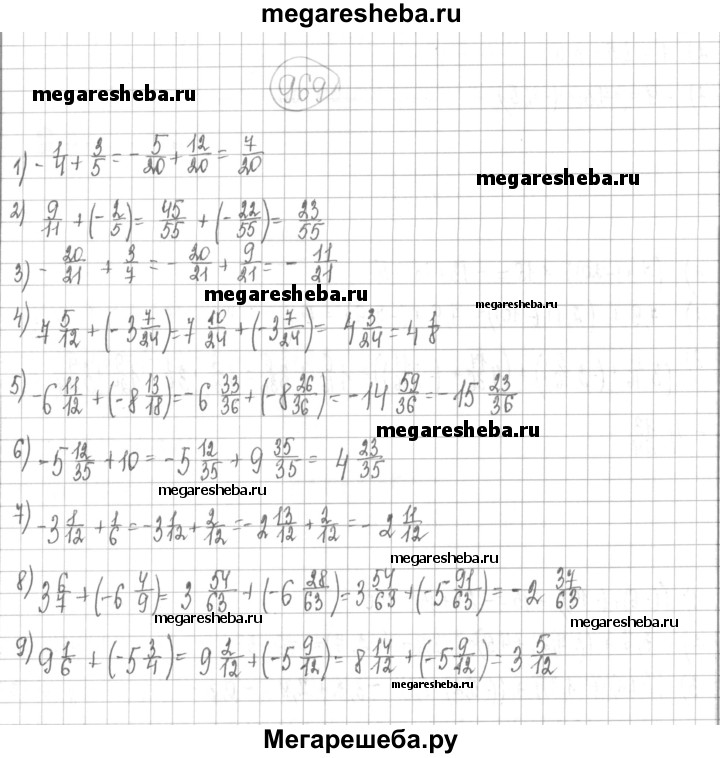 megaresheba.ru
969
megaresheba.ru
1) -1/4 + 3/5 = -5/20 + 12/20 = 7/20
megaresheba.ru
2) 9/11 + (-2/5) = 45/55 + (-22/55) = 23/55
3) -20/21 + 3/7 = -20/21 + 9/21 = -11/21
megaresheba.ru
megaresheba.ru
4) 7 5/12 + (-3 7/24) = 7 10/24 + (-3 7/24) = 4 3/24 = 4 1/8
5) -6 11/12 + (-8 13/18) = -6 33/36 + (-8 26/36) = -14 59/36 = -15 23/36
megaresheba.ru
6) -5 12/35 + 10 = -5 12/35 + 9 35/35 = 4 23/35
megaresheba.ru
7) -3 1/12 + 1/6 = -3 1/12 + 2/12 = -2 13/12 + 2/12 = -2 11/12
megaresheba.ru
8) 3 6/7 + (-6 4/9) = 3 54/63 + (-6 28/63) = 3 54/63 + (-5 91/63) = -2 37/63
megaresheba.ru
megaresheba.ru
9) 9 1/6 + (-5 3/4) = 9 2/12 + (-5 9/12) = 8 14/12 + (-5 9/12) = 3 5/12
megaresheba.ru
Мегарешеба.ру